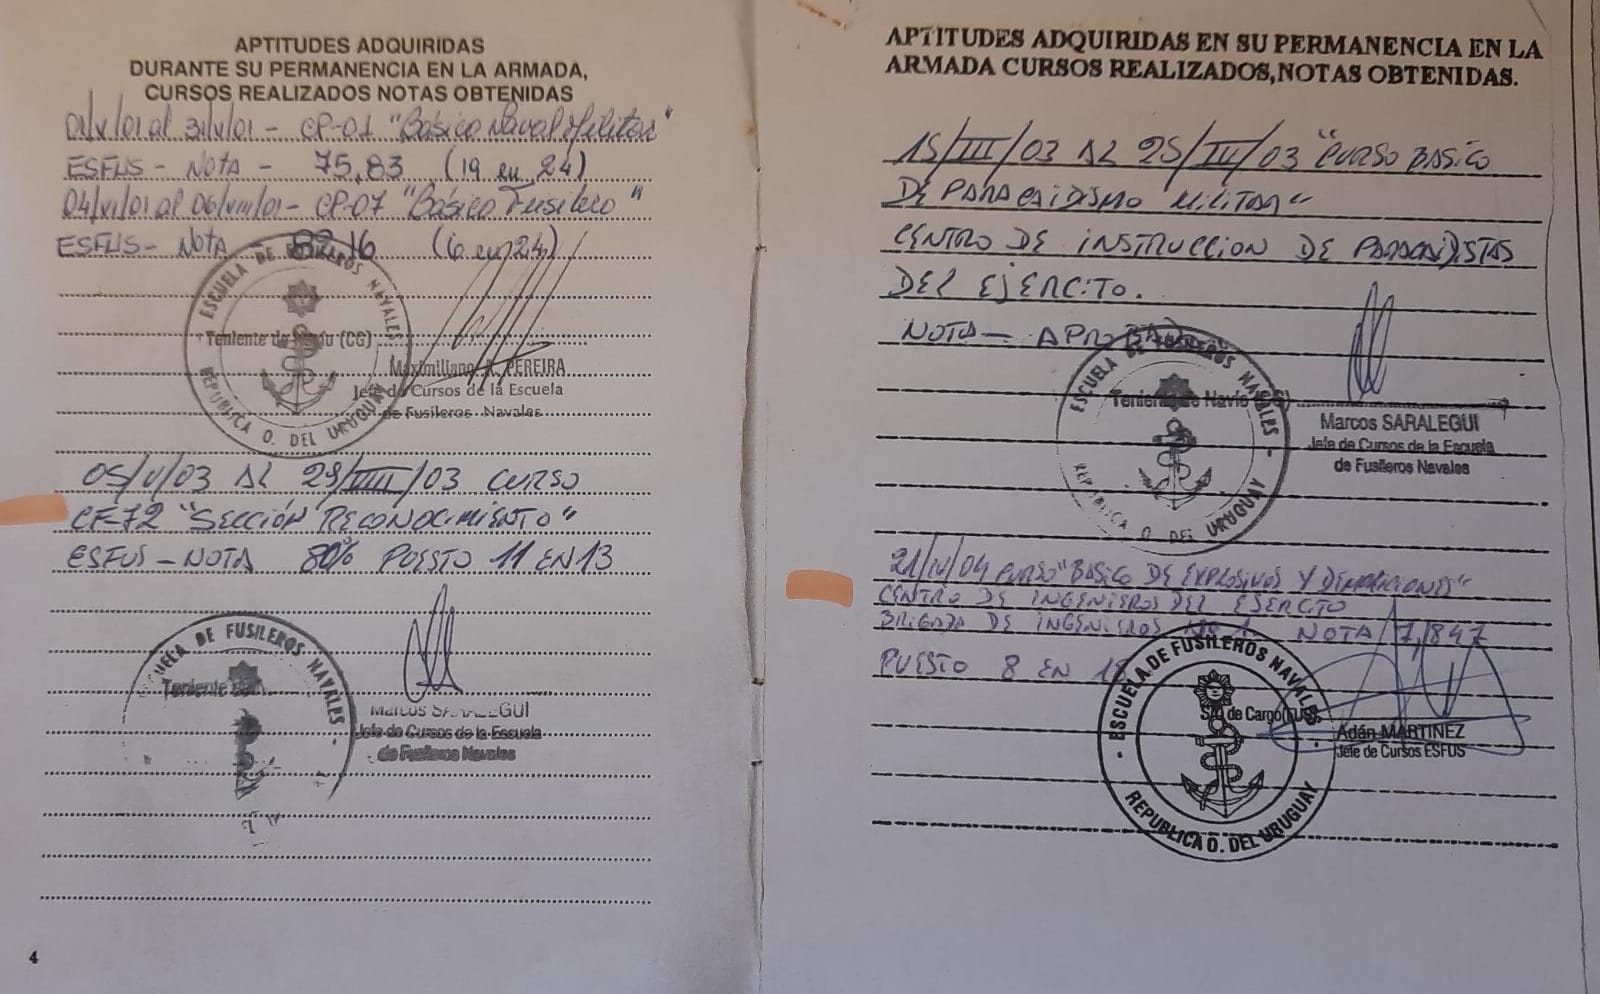 APTITUDES ADQUIRIDAS
DURANTE SU PERMANENCIA EN LA ARMADA,
CURSOS REALIZADOS NOTAS OBTENIDAS
01/V/01 al 31/V/01 - CP-01 "Básico Naval Militar"
ESFUS - Nota - 75,83 (19 en 24)
04/VI/01 al 06/VIII/01 - CP-07 "Básico Fusilero"
ESFUS - Nota - 82,16 (6 en 24)
ESCUELA DE FUSILEROS NAVALES
REPUBLICA O. DEL URUGUAY
Teniente de Navío (CG)
Maximiliano A. PEREIRA
Jefe de Cursos de la Escuela
de Fusileros Navales
05/V/03 AL 29/VIII/03 CURSO
CF-72 "SECCIÓN RECONOCIMIENTO"
ESFUS - NOTA 80% PUESTO 11 EN 13
ESCUELA DE FUSILEROS NAVALES
Teniente de
Marcos SARALEGUI
Jefe de Cursos de la Escuela
de Fusileros Navales
4
APTITUDES ADQUIRIDAS EN SU PERMANENCIA EN LA
ARMADA CURSOS REALIZADOS,NOTAS OBTENIDAS.
15/III/03 AL 25/IV/03 "CURSO BASICO
DE PARACAIDISMO MILITAR"
CENTRO DE INSTRUCCION DE PARACAIDISTAS
DEL EJERCITO.
NOTA - APROBADO
ESCUELA DE FUSILEROS NAVALES
REPUBLICA O. DEL URUGUAY
Teniente de Navío
Marcos SARALEGUI
Jefe de Cursos de la Escuela
de Fusileros Navales
21/IV/04 CURSO "BASICO DE EXPLOSIVOS Y DEMOLICIONES"
CENTRO DE INGENIEROS DEL EJERCITO
BRIGADA DE INGENIEROS No 1. NOTA 7,847
PUESTO 8 EN 18
- ESCUELA DE FUSILEROS NAVALES -
REPUBLICA O. DEL URUGUAY
de Cargo
Adán MARTINEZ
Jefe de Cursos ESFUS